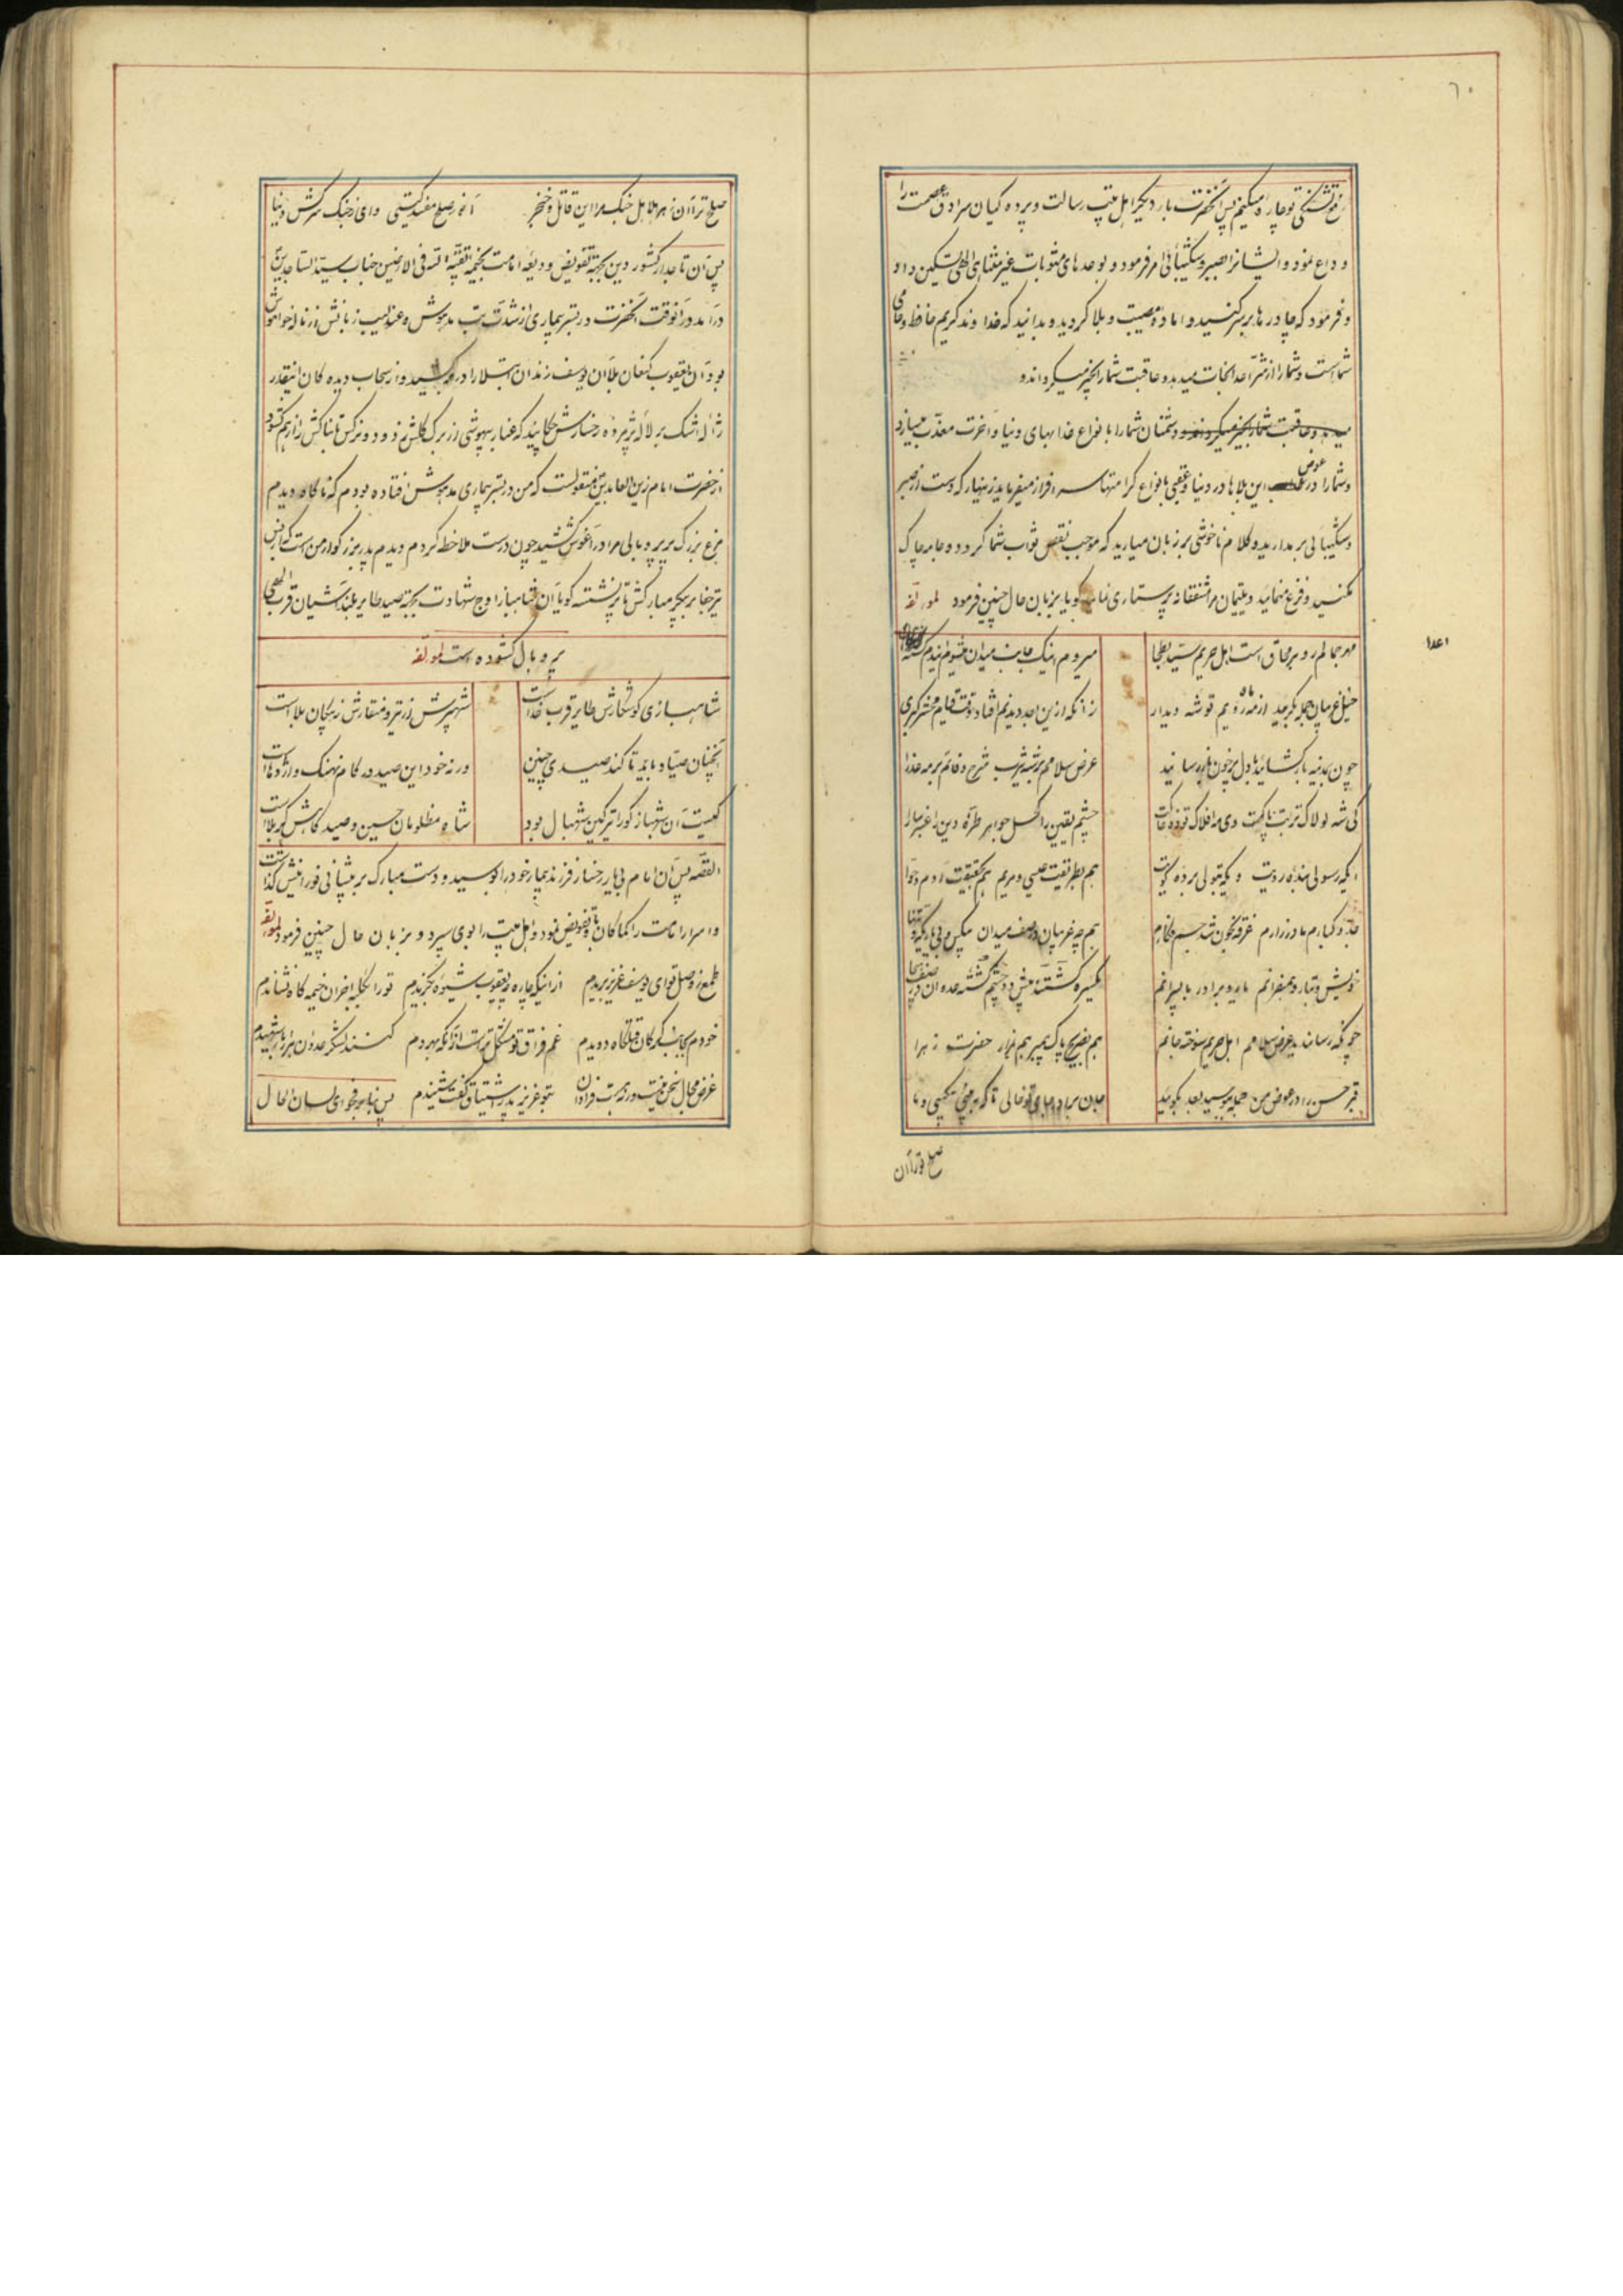 ٦٠
رفع تشنگی تو چاره میکنیم پس آنحضرت بار دیگر اهل بیت رسالت و پرده کیان سرادق عصمت را
وداع نمود و ایشانرا بصبر و شکیبائی امر فرمود و بوعدهای مثوبات غیر متناهی الهی تسکین داد
و فرمود که چادرها بر سر کنید و اماده مصیبت و بلا کردید و بدانید که خداوند کریم حافظ و حامی
شماست و شمارا از شر اعدا نجات میدهد و عاقبت شمارا بخیر میکرداند و
میدهد و عاقبت شمارا بخیر میکرداند و دشمنان شمارا بانواع عذابهای دنیا و اخرت معذب میسازد
و شمارا در عوض این بلاها در دنیا و عقبی بانواع کرامتها سرافراز میفرماید زینهار که دست از صبر
و شکیبائی برمدارید و کلام ناخوشی بر زبان میارید که موجب نقص ثواب شما کردد و جامه چاک
مکنید و فزع منمائید و یتیمان مرا مشفقانه پرستاری نمائید کویا بزبان حال چنین فرمود لمولفه
مهر جمالم رو بمحاق است اهل حریم سید بطحا میروم اینک جانب میدان میشوم ایندم کشته اعدا
خیل غریبان جمله بکرید از مه رویم توشه دیدار زانکه ازین بعد دیدنم افتاد وقت قیام محشر کبری
چون بمدینه بار کشائید با دل پر خون باز رسانید عرض سلامم بر شه یثرب شرح وفاتم بر مه عذرا
کی شه لولاک تربت پاکت وی مه افلاک چشم یقین را کحل جواهر طره دین را عنبر سارا
ایکه رسولی بنده رویت ویکه بتولی برده کویت هم بطریقت عیسی و مریم هم بحقیقت ادم و حوا
جد کبارم مادر زارم غرقه بخون شد جسم فکارم هم چه غریبان در صف میدان بیکس و بی یار یکه و تنها
خویش و تبار و همسفرانم یار و برادر با پسرانم یکسره کشتند پیش دو چشمم
چونکه رساند عرض سلامم اهل حریم سوخته جانم هم بضریح پاک پیمبر هم بمزار حضرت زهرا
قبر حسن را در عوض من جمله ببوسید بعد بکوئید جان برادر جای تو خالی تا که به بینی بیکسی ما
صلح تو زان
صلح ترا ان زهر هلاهل جنک مرا این قاتل و خنجر اه ز صلح مفسد کیتی وای ز جنک سرکش دنیا
پس ان تاجدار کشور دین بجهة تفویض ودیعه امامت بخیمه بقیة الله فی الارضین جناب سید الساجدین
درامد درانوقت انحضرت در بستر بیماری از شدت تب مدهوش و عندلیب زبانش از ناله خواموش
بود ان یعقوب کنعان بلا ان یوسف زندان ابتلا را در بر کشید و از سحاب دیده کان انیقدر
ژاله اشک بر لاله پژمرده رخسارش چکانید که غبار بیهوشی از برک کلش زدود و نرکس تابناکش را از هم کشود
از حضرت امام زین العابدین منقولست که من در بستر بیماری مدهوش افتاده بودم که ناکاه دیدم
مرغ بزرک پر پر و بالی مرا در اغوش کشید چون درست ملاحظه کردم دیدم پدر بزرکوار من است که از بس
تیر جفا بر پیکر مبارکش تا پر نشسته کویا ان شاهباز اوج شهادت بجهة صید طایر بلند اشیان قرب الهی
پر و بال کشوده است لمولفه
شاهبازی کو شکارش طایر قرب خداست شهپرش از تیر و منقارش ز پیکان بلاست
انچنان صیاد باید تا کند صیدی چنین ورنه خود این صید در کام نهنک و اژدهاست
کیست ان شهباز کورا تیر کین شهبال بود شاه مظلومان حسین و صید کاهش کربلاست
القصه پس ان امام بی یار رخسار فرزند بیمار خود را بوسید و دست مبارک بر پیشانی نورانیش کذاشت
و اسرار امامت را کما کان باو تفویض نمود و اهل بیت را بوی سپرد و بزبان حال چنین فرمود لمولفه
طمع ز وصل تو ای یوسف عزیز بریدم از اینکه چاره چو یعقوب شیوه نکزیدم تو را بکلبه احزان خیمه کاه نشاندم
خودم بجانب کرکان قتلکاه دویدم غم فراق تو مشکل تر است ازانکه بهر دم کنند لشکر عدوان هزار بار شهیدم
غرض مجال سخن نیست ورنه هست فراوان بتو عزیز پدر اشتیاق کفت و شنیدم پس بنا بر فحوای لسان الحال